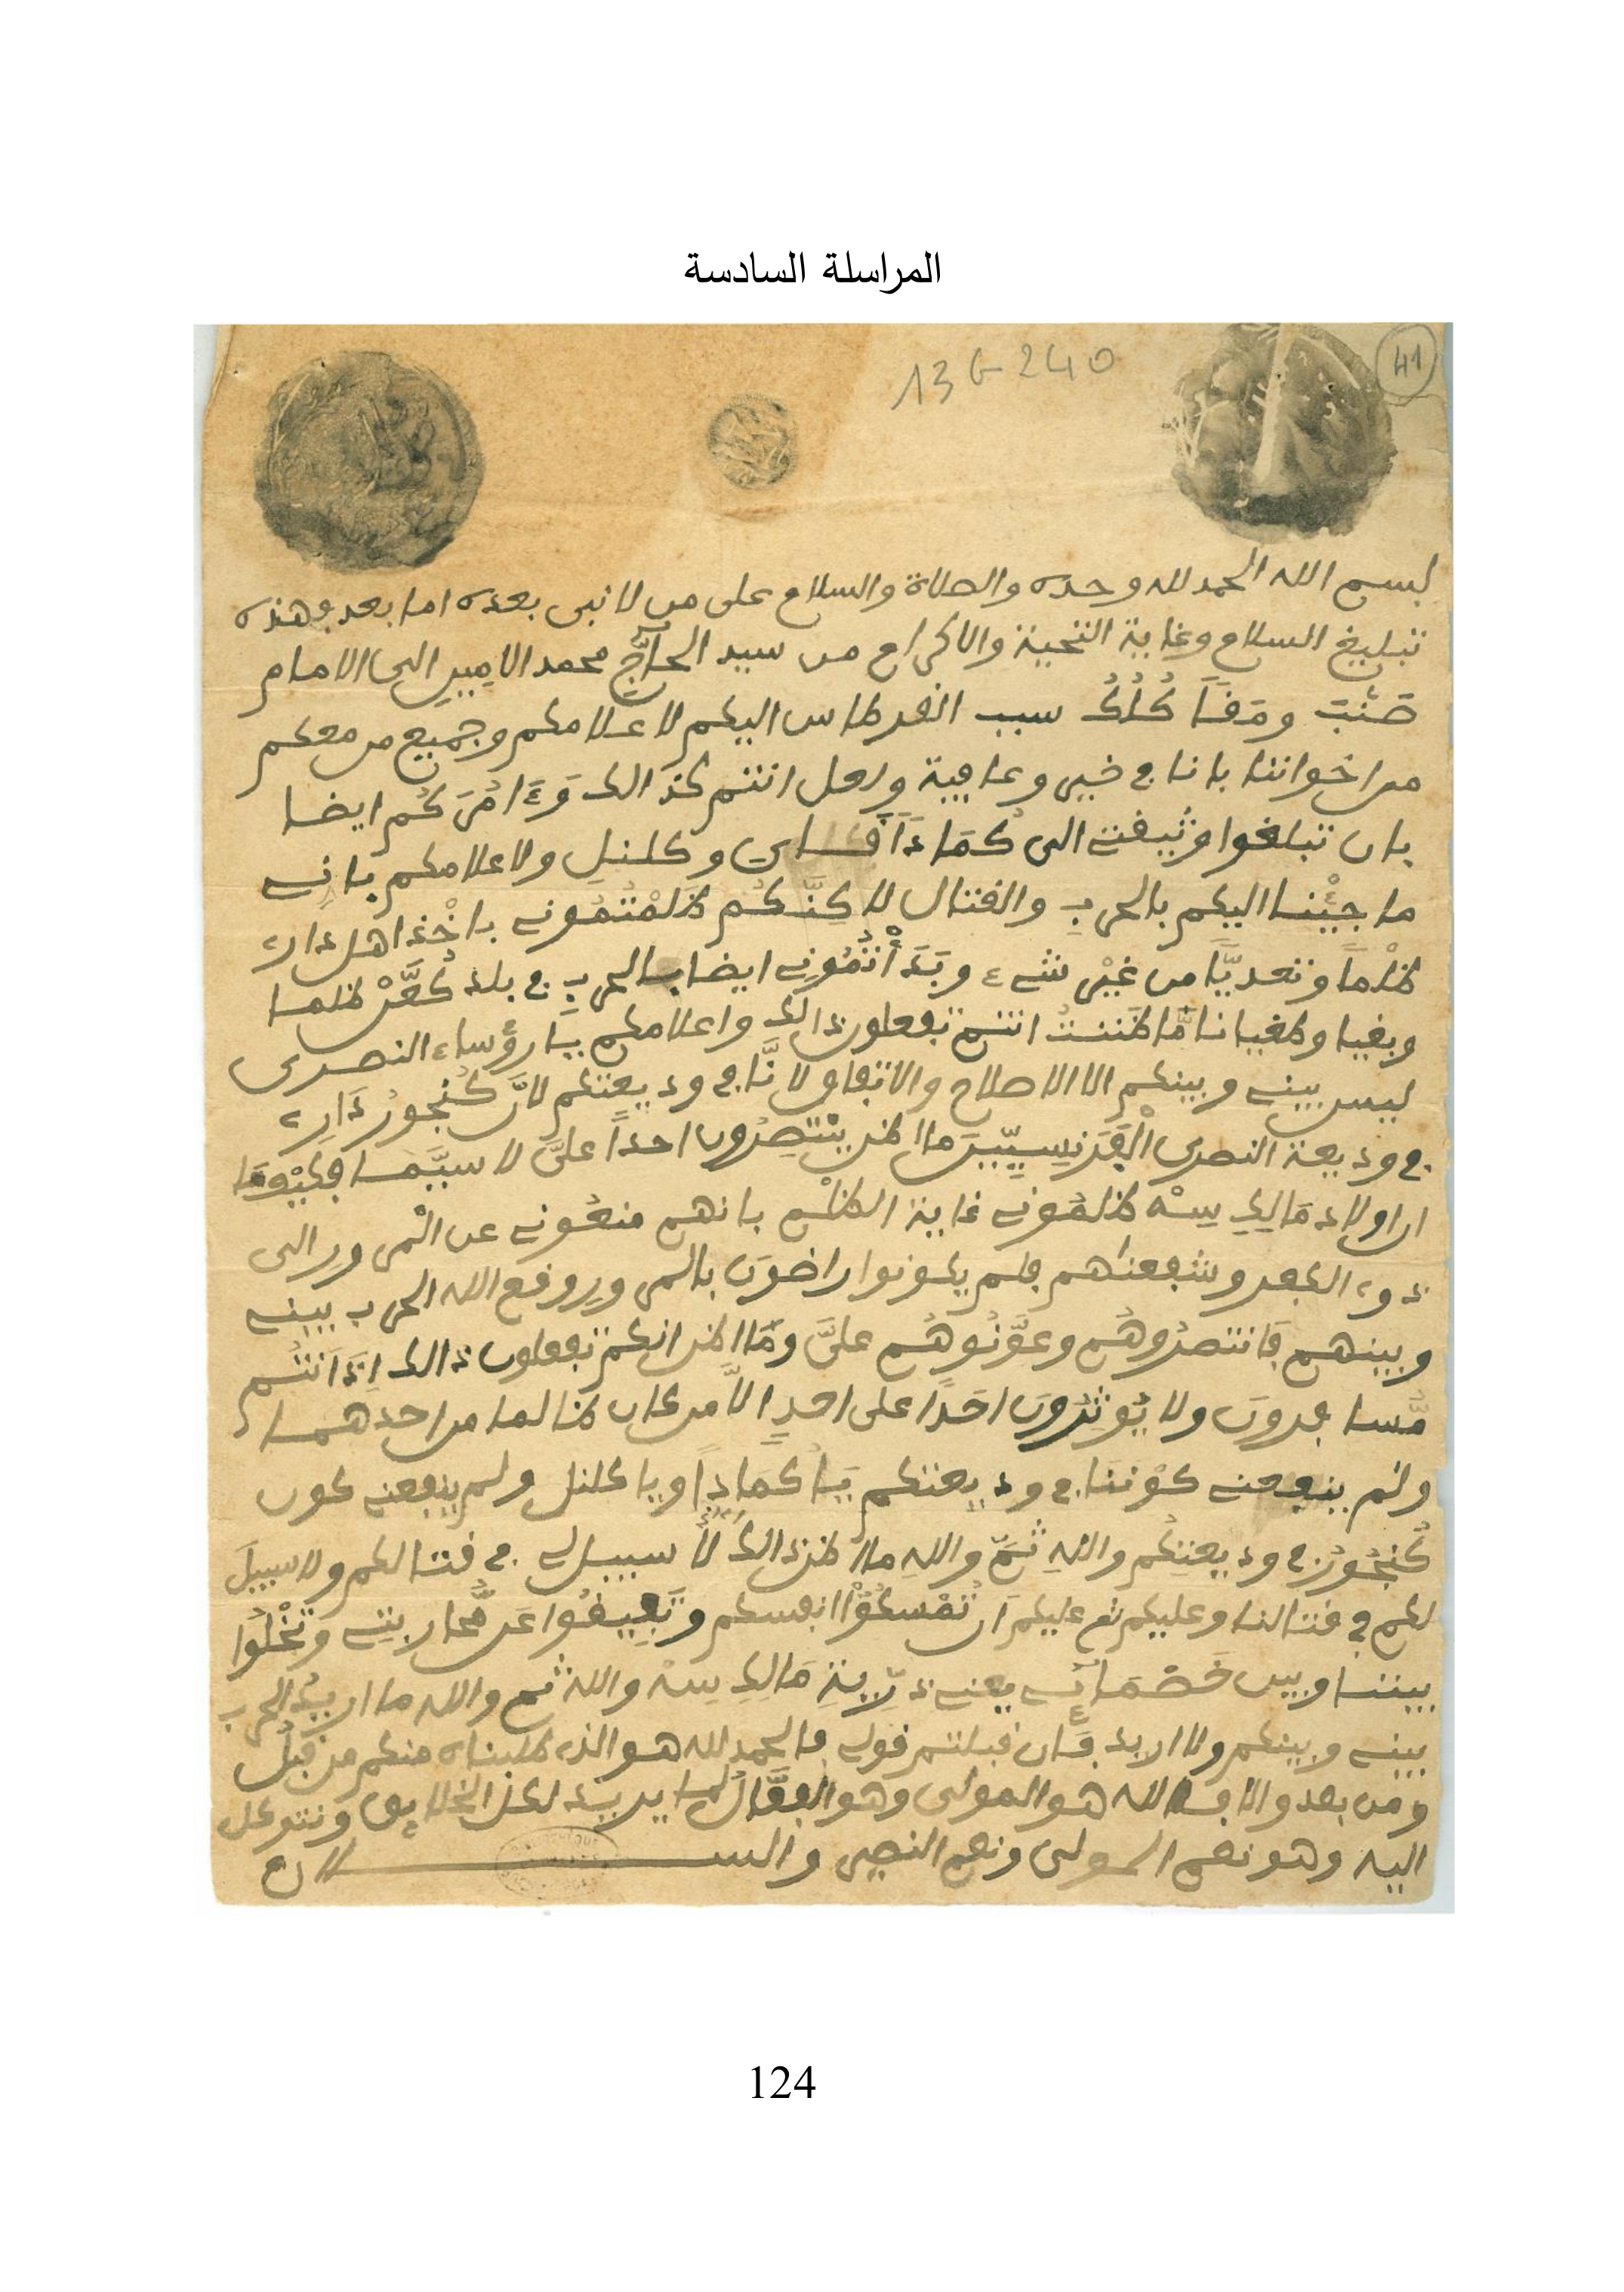 المراسلة السادسة
41
13 G 240
بسم الله الحمد لله وحده والصلاة والسلام على من لا نبي بعده اما بعد فهذه
تبليغ السلام وغاية التحية والاكرام من سيد الحاجّ محمد الامين الى الامام
سبب القرطاس اليكم لاعلامكم وجميع من معكم
من اخواننا بانا في خير وعافية ولعل انتم كذالك وءَامُرَكُم ايضا
بان تبلغوا وثيقتي الى كُمَادَا وكلنل ولاعلامكم باني
ما جِئْنا اليكم بالحربِ والقتال لاكِنَّكُم ظَلَمْتُمُوني باخْذ اهل دارى
ظلْماً وتعديّاً من غيْر شىء وبَدَأْتُمُونِي ايضا بالحربِ في بلد ظلما
وبغيا وطغيانا مَّا ظَننتُ انتم تفعلون ذالك واعلامكم يَا رؤساء النصرى
ليس بيني وبينكم الا الاصلاح والاتفاق لانَّا في وديعتكم لانَّ كُنجُورُ دَارِى
في وديعة النصرى الْفَرَنسِيّينَ ما اظن ينْتصِرُون احداً علىَّ لا سيَّما
ان اولاد مَالِكِ سِهْ ظلمُوني غاية الظلْم بانهم منعُوني عن الْمرور الى
وشفعناهم فلم يكونوا راضونَ بالمرورِ وقع الله الحرب بيني
وبينهم فَانتصرُوهُم وعوَّنُوهُم علىَّ ومَّا اظن انكم تفعلون ذالك اِذَا انتُم
مُّسافرونَ ولا يُوثِرُونَ احَدًا على احدٍ الاَّ من كان ظالما من احدهما
ولم ينفعني كوْننَا في وديعتكم يَا كُمَادِا ويا كلنل ولم ينفعني كون
كُنجُورُ في وديعتِكُم واللهِ ثمَّ واللهِ ما اظن ذالك لاَ سبيل لي في قتالكم ولا سبيلَ
لكم في قتالنا وعليكم ثم عليكم اَن تُمْسكُوْا انفسكم عَن مُّحاربتِي وتَخْلُوا
بيننا وبين خَصْمَائي يعني ذرّيةِ مَالِكِ سِهْ والله ثم والله ما اريدُ الحرب
بيني وبينكم ولا اريد فَإن قبلتم قولي فالحمد لله هو الذى طلبناه منكم من قبلُ
ومن بعد والا فالله هو المولى وهو الفعَّالُ لما يريد لكل الخلايق ونتوكل
اليه وهو نعم المولى ونعم النصير والســــــــلام
124